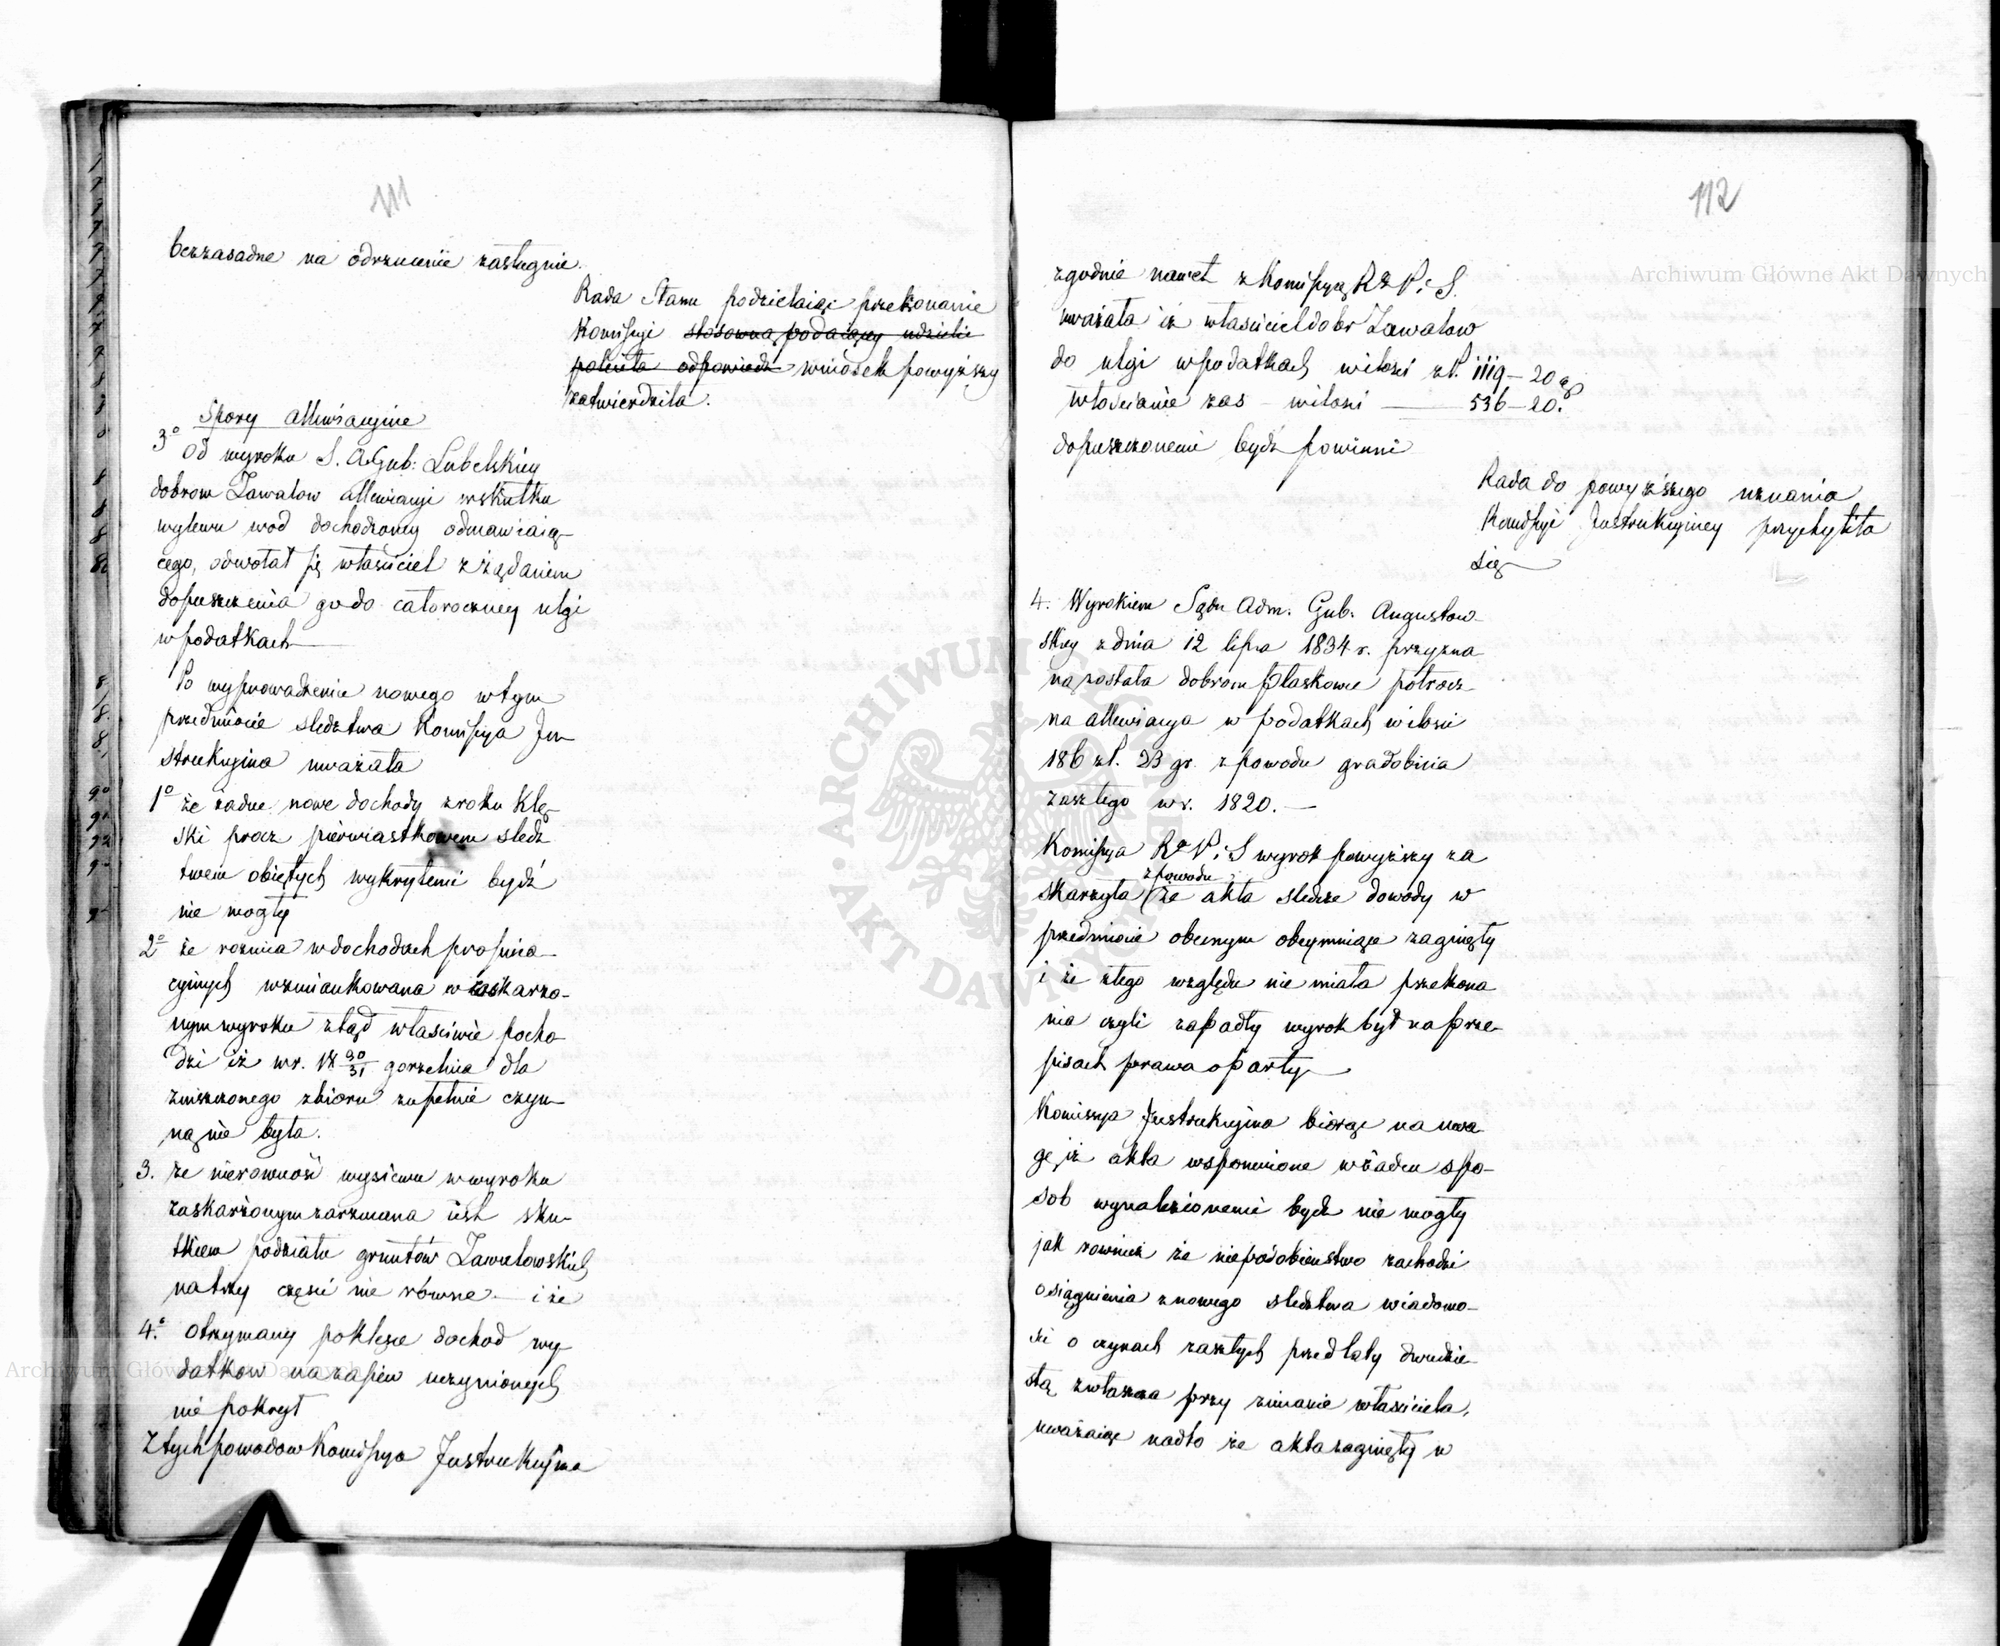 111
bezzasadne na odrzucenie zasługuie.
Rada Stanu podzielaiąc przekonanie
Kommissyi stosowną podaiącey udzielić
poleciła odpowiedź wniosek powyższy
zatwierdziła.
Spory allewiacyine
3º Od wyroku S. A. Gub: Lubelskiey
dobrom Zawalow allewiacyi wskutku
wylewu wod dochodzoney odmawiaią-
cego, odwołał się właściciel z żądaniem
dopuszczenia go do całoroczney ulgi
w podatkach
Po wyprowadzenie nowego w tym
przedmiocie sledztwa Kommissya In-
strukcyina uważała
1º że żadne nowe dochody z roku klę-
ski procz pierwiastkowem sledz
twem obiętych wykrytemi bydź
nie mogły
2º że roznica w dochodach propina-
cyinych wzmiankowana w zaskarżo-
nym wyroku ztąd właściwie pocho-
dzi iż w r. 18 30/31 gorzelnia dla
zniszczonego zbioru zupełnie czyn-
ną nie była.
3. że nierowność wysiewu w wyroku
zaskarżonym zarzucana iest sku-
tkiem podziału gruntów Zawalowskich
na trzy części nie równe - i że
4.º otrzymany po klęsce dochod wy-
datkow na zasiew uczynionych
nie pokrył
Z tych powodow Kommissya Instrukcyina
112
zgodnie nawet z Kommissyą R. P. i S.
uważała iż właściciel dobr Zawalow
do ulgi w podatkach w ilości zł. 1119-20 gr
Włościanie zas - w ilosci 536-20.
dopuszczonemi bydź powinni
Rada do powyższego uznania
Kommissyi Instrukcyiney przychyliła
się
4. Wyrokiem Sądu Adm. Gub. Augustow-
skiey z dnia 12 lipca 1834 r. przyzna
na została dobrom Płaskowie połrocz-
na allewiacya w podatkach w ilosci
186 zł. 23 gr. z powodu gradobicia
zaszłego w r. 1820.
Kommissya R. P. i S wyrok powyższy za
skarżyła z powodu że akta sledcze dowody w
przedmiocie obecnym obeymuiące zaginęły
i że ztego względu nie miała przekona
nia czyli zapadły wyrok był na prze-
pisach prawa oparty
Komissya Instrukcyina biorąc na uwa
gę iż akta wspomnione w żaden spo-
sob wynalezionemi bydz nie mogły
jak rownież że niepodobieństwo zachodzi
osiągnienia z nowego sledztwa wiadomo-
ści o czynach zaszłych przed laty dwudzie-
stą zwłaszcza przy zmianie właściciela,
uważaiąc nadto że akta zaginęły w